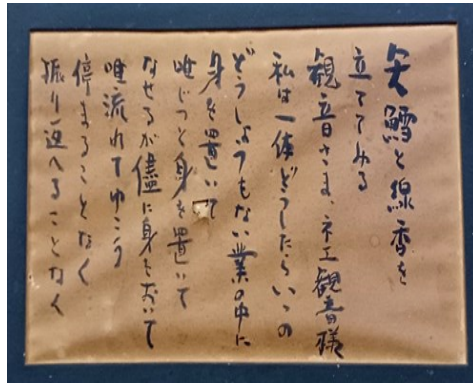 矢鱈と線香を
立ててみる
観音さま、ネエ観音様
私は一体どうしたらいゝの
どうしようもない業の中に
身を置いて
唯じっと身を置いて
なせるが儘に身をおいて
唯流れてゆこう
停まることなく
振り返へることなく